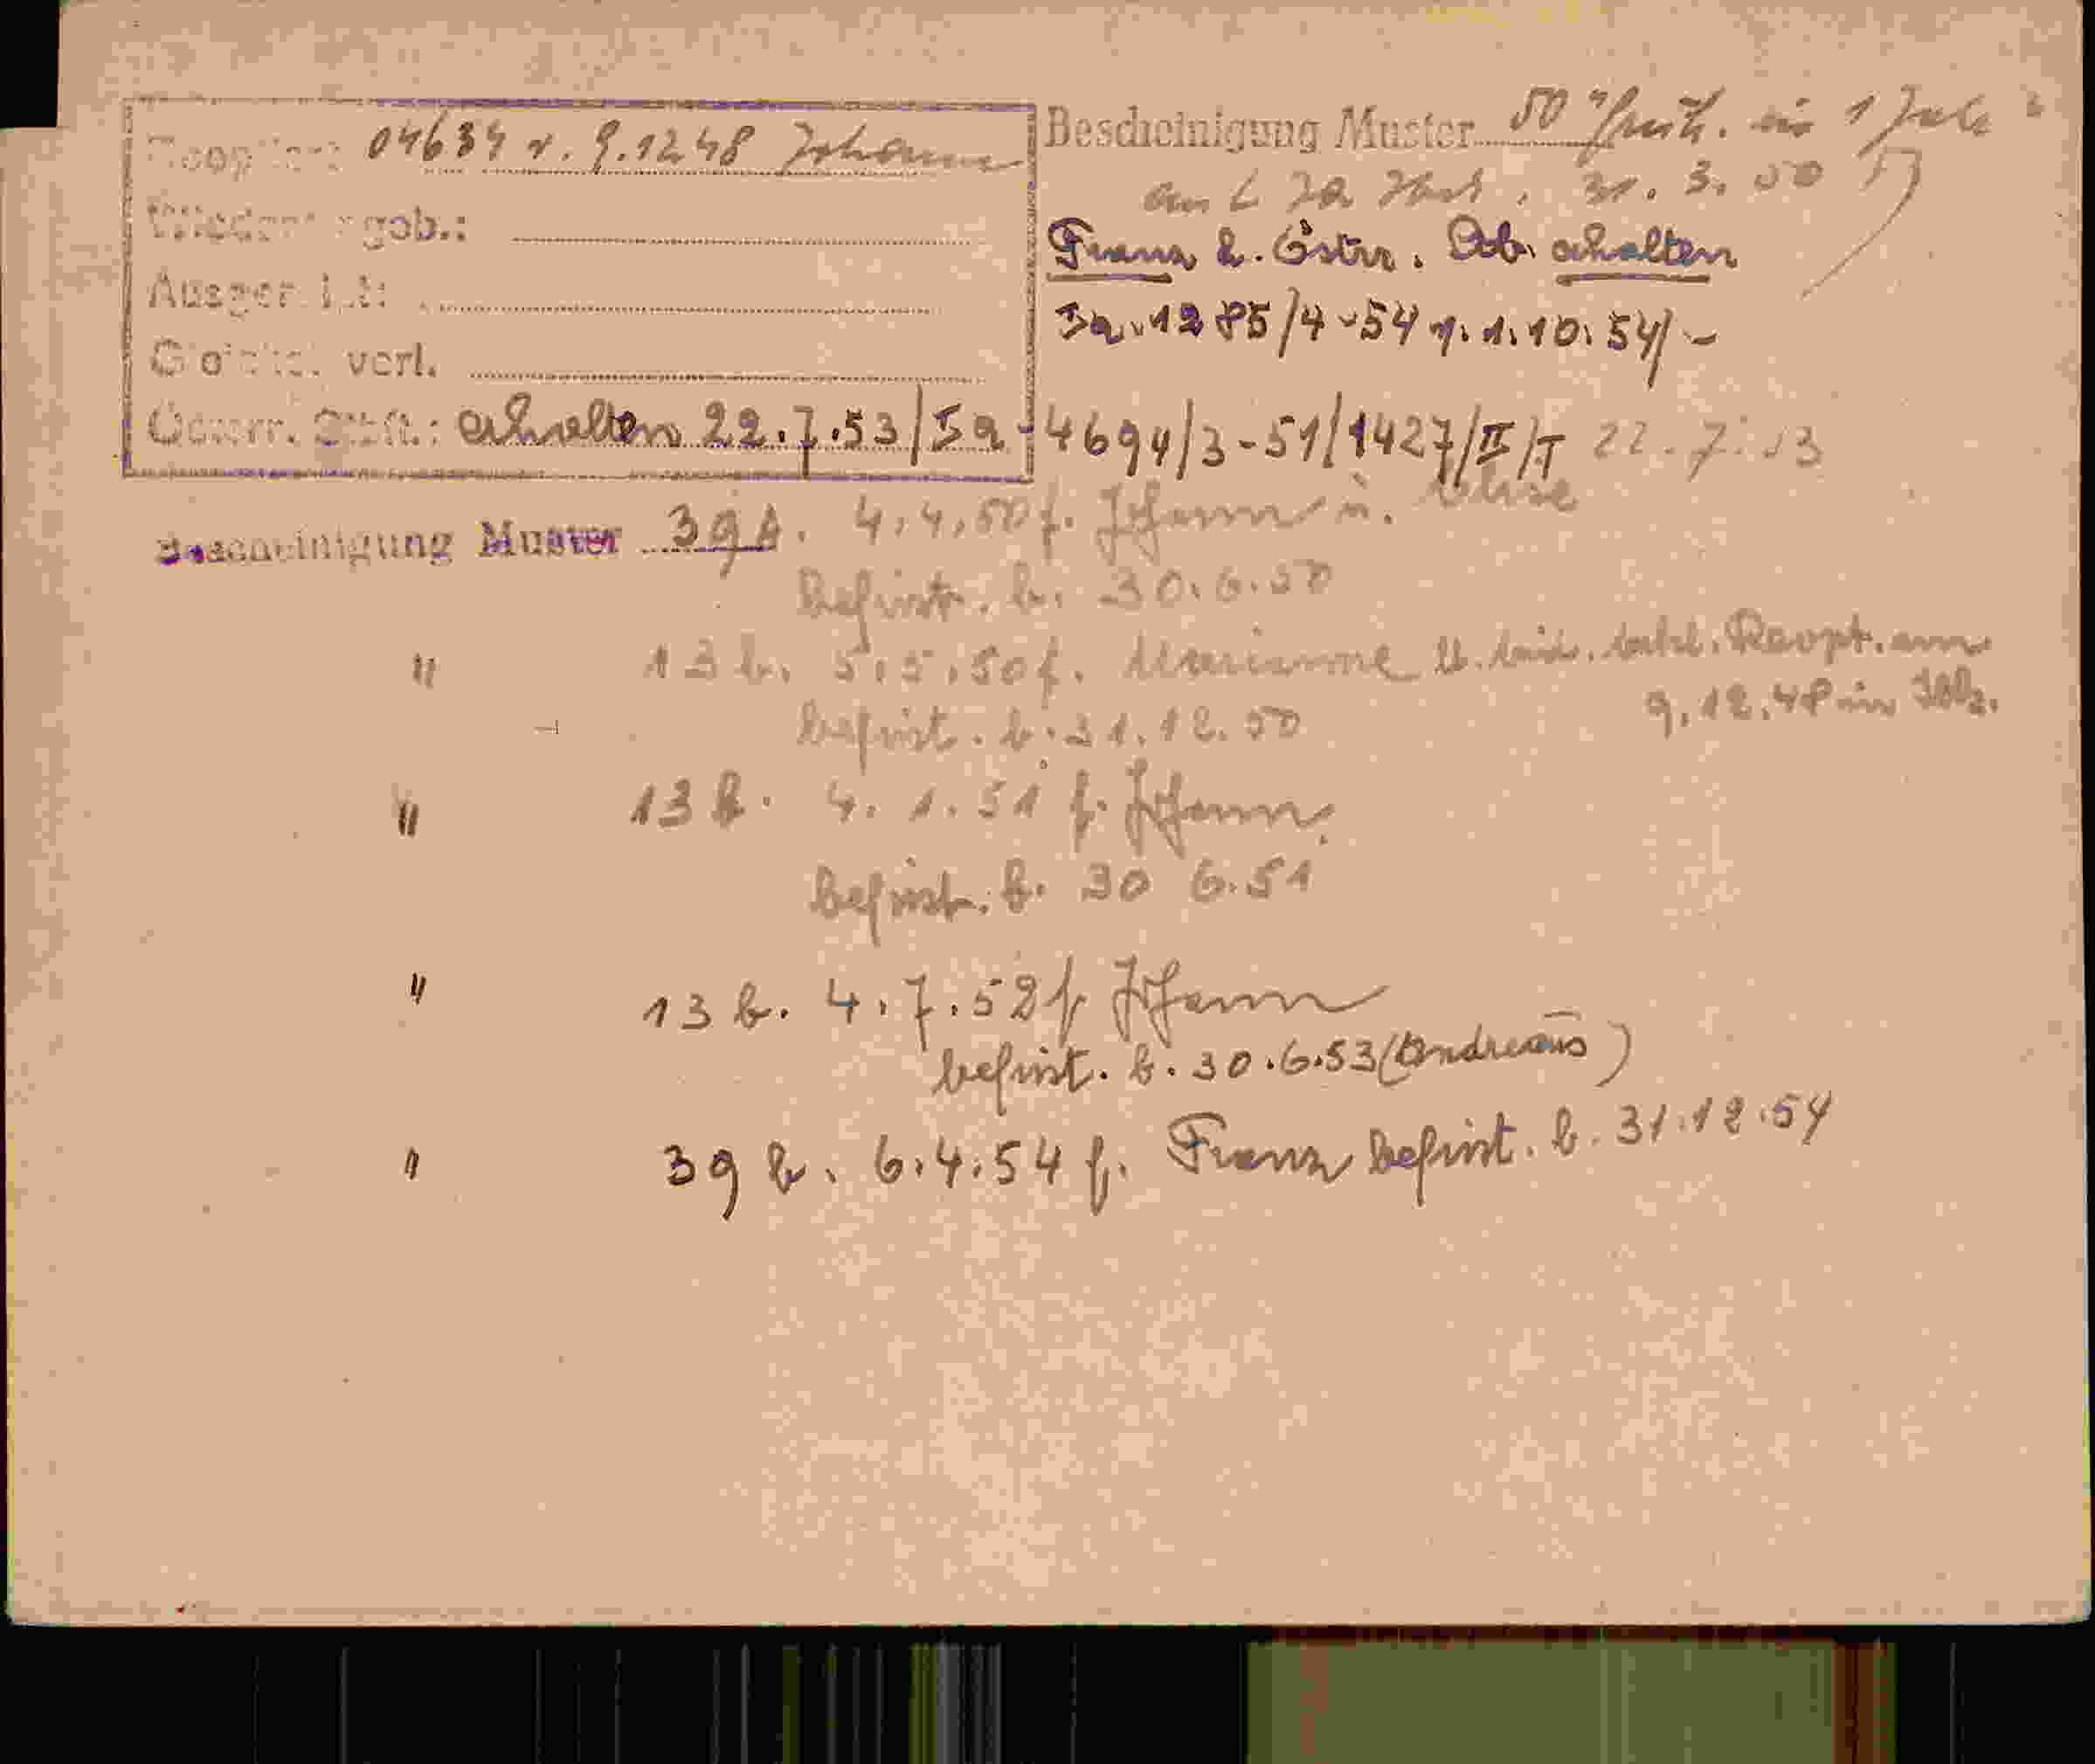 Reoptiert: 04634 v. 9.12.48 Johann
Wiedereingeb.:
Ausger.
verl.
Österr. Stbft.: erhalten 22.7.53/Ia-4694/3-51/1427/II/I 22.7.53
Bescheinigung Muster 50
31.3.50
Franz h. Östrr. erhalten
Ia-1285/4-54 v. 1.10.54/-
Bescheinigung Muster 39b. 4.4.50 f. Johann u.
befrist. b. 30.6.50
" 13b. 5.5.50 f. Marianne Reopt. am
9.12.48 in
befrist. b. 31.12.50
" 13b. 4.1.51 f. Johann.
befrist. b. 30 6.51
" 13b. 4.7.52 f. Johann
befrist. b. 30.6.53 (Andreas)
" 39b. 6.4.54 f. Franz befrist. b. 31.12.54